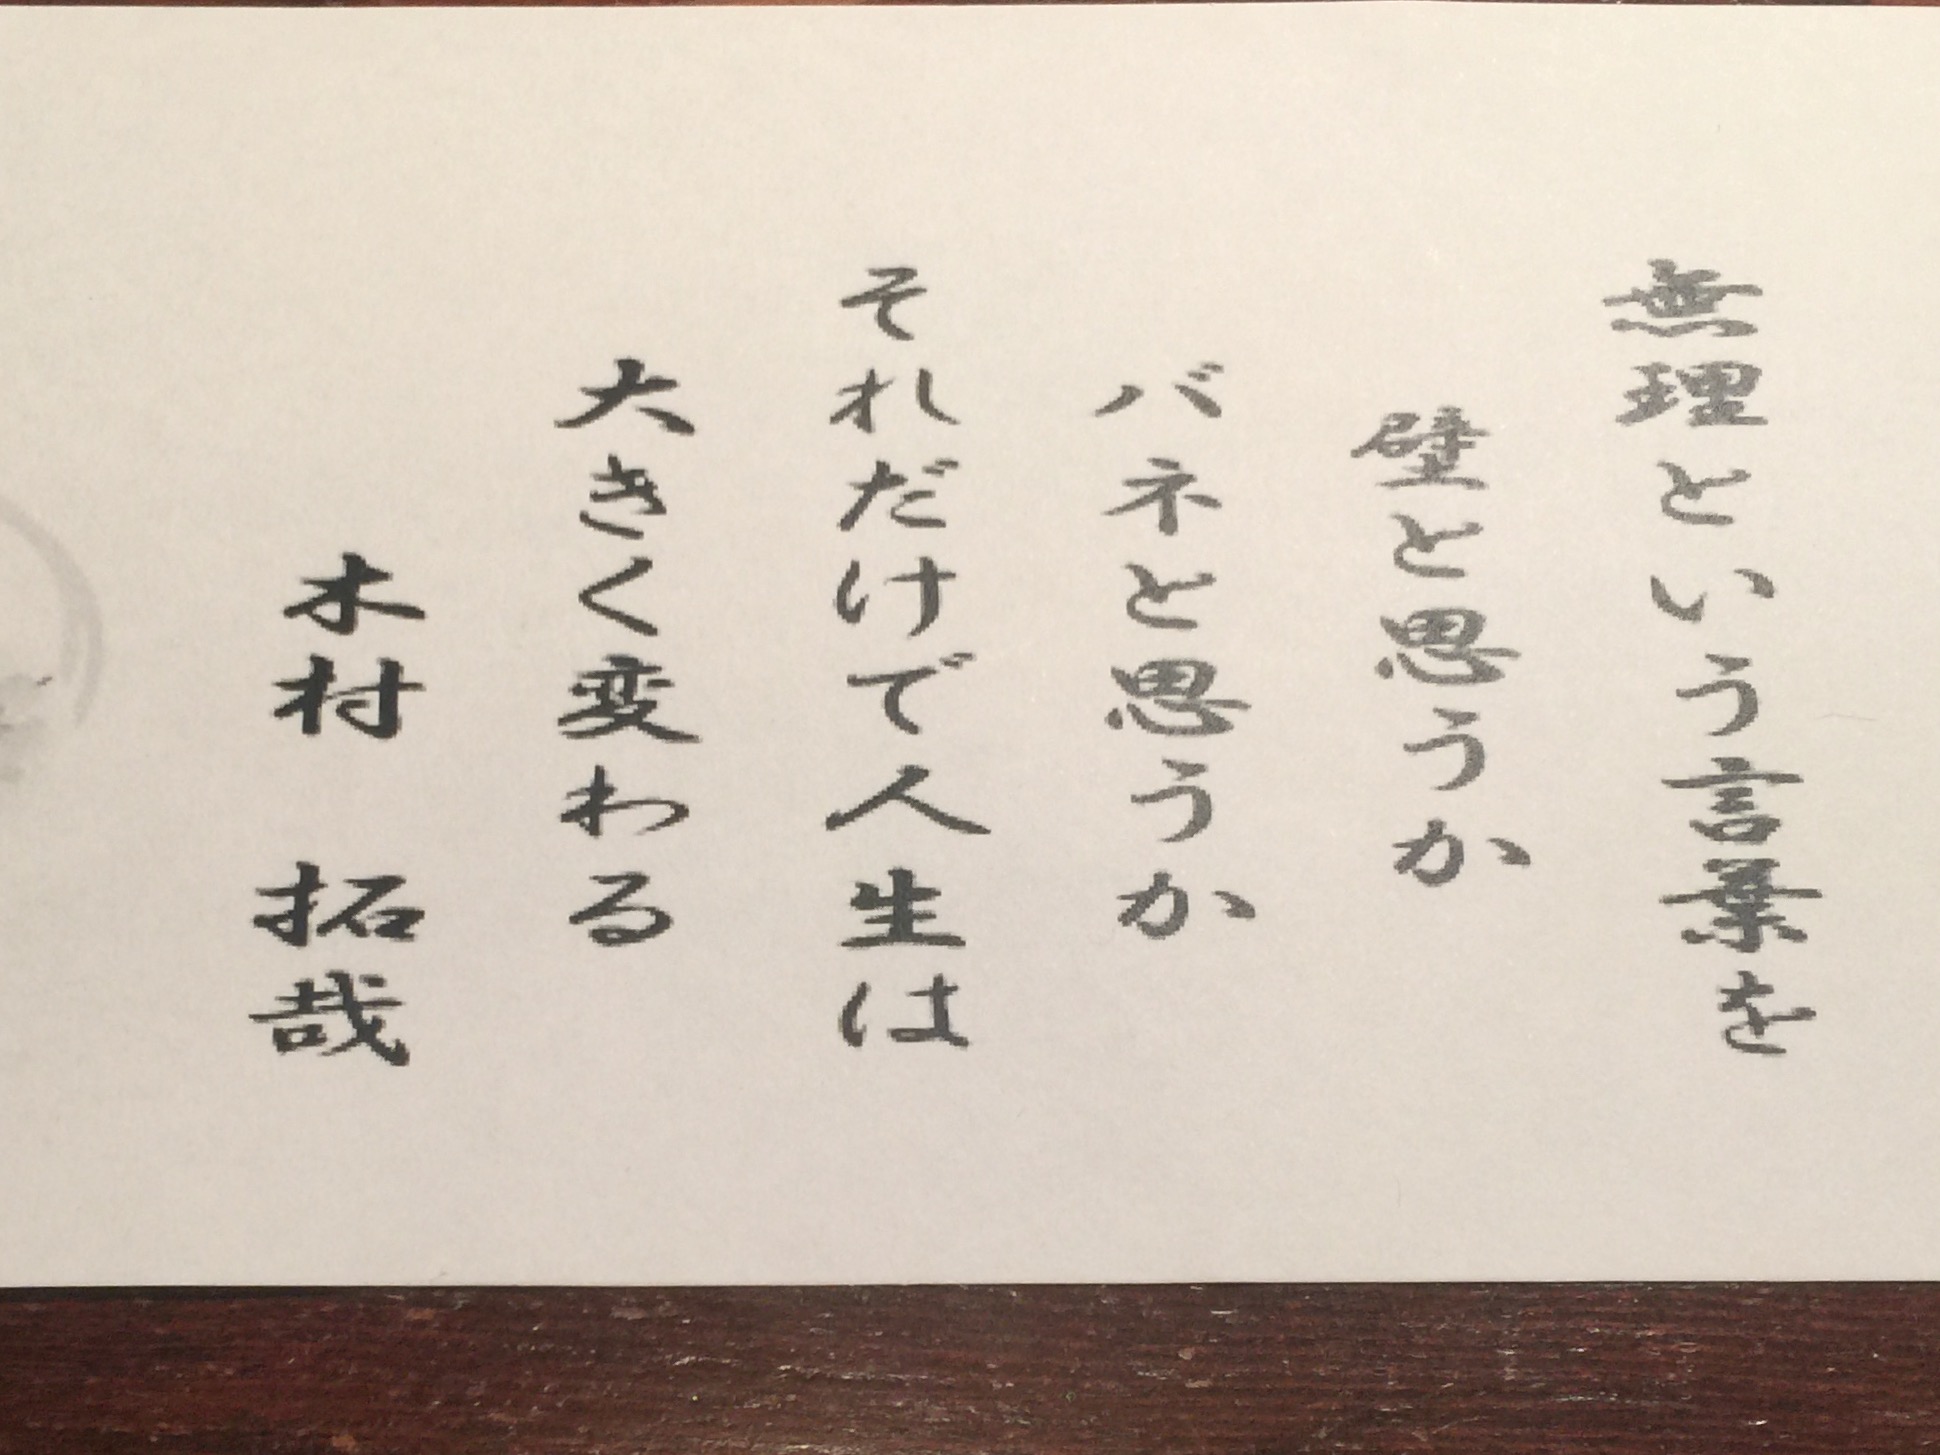 無理という言葉を
壁と思うか
バネと思うか
それだけで人生は
大きく変わる
木村 拓哉